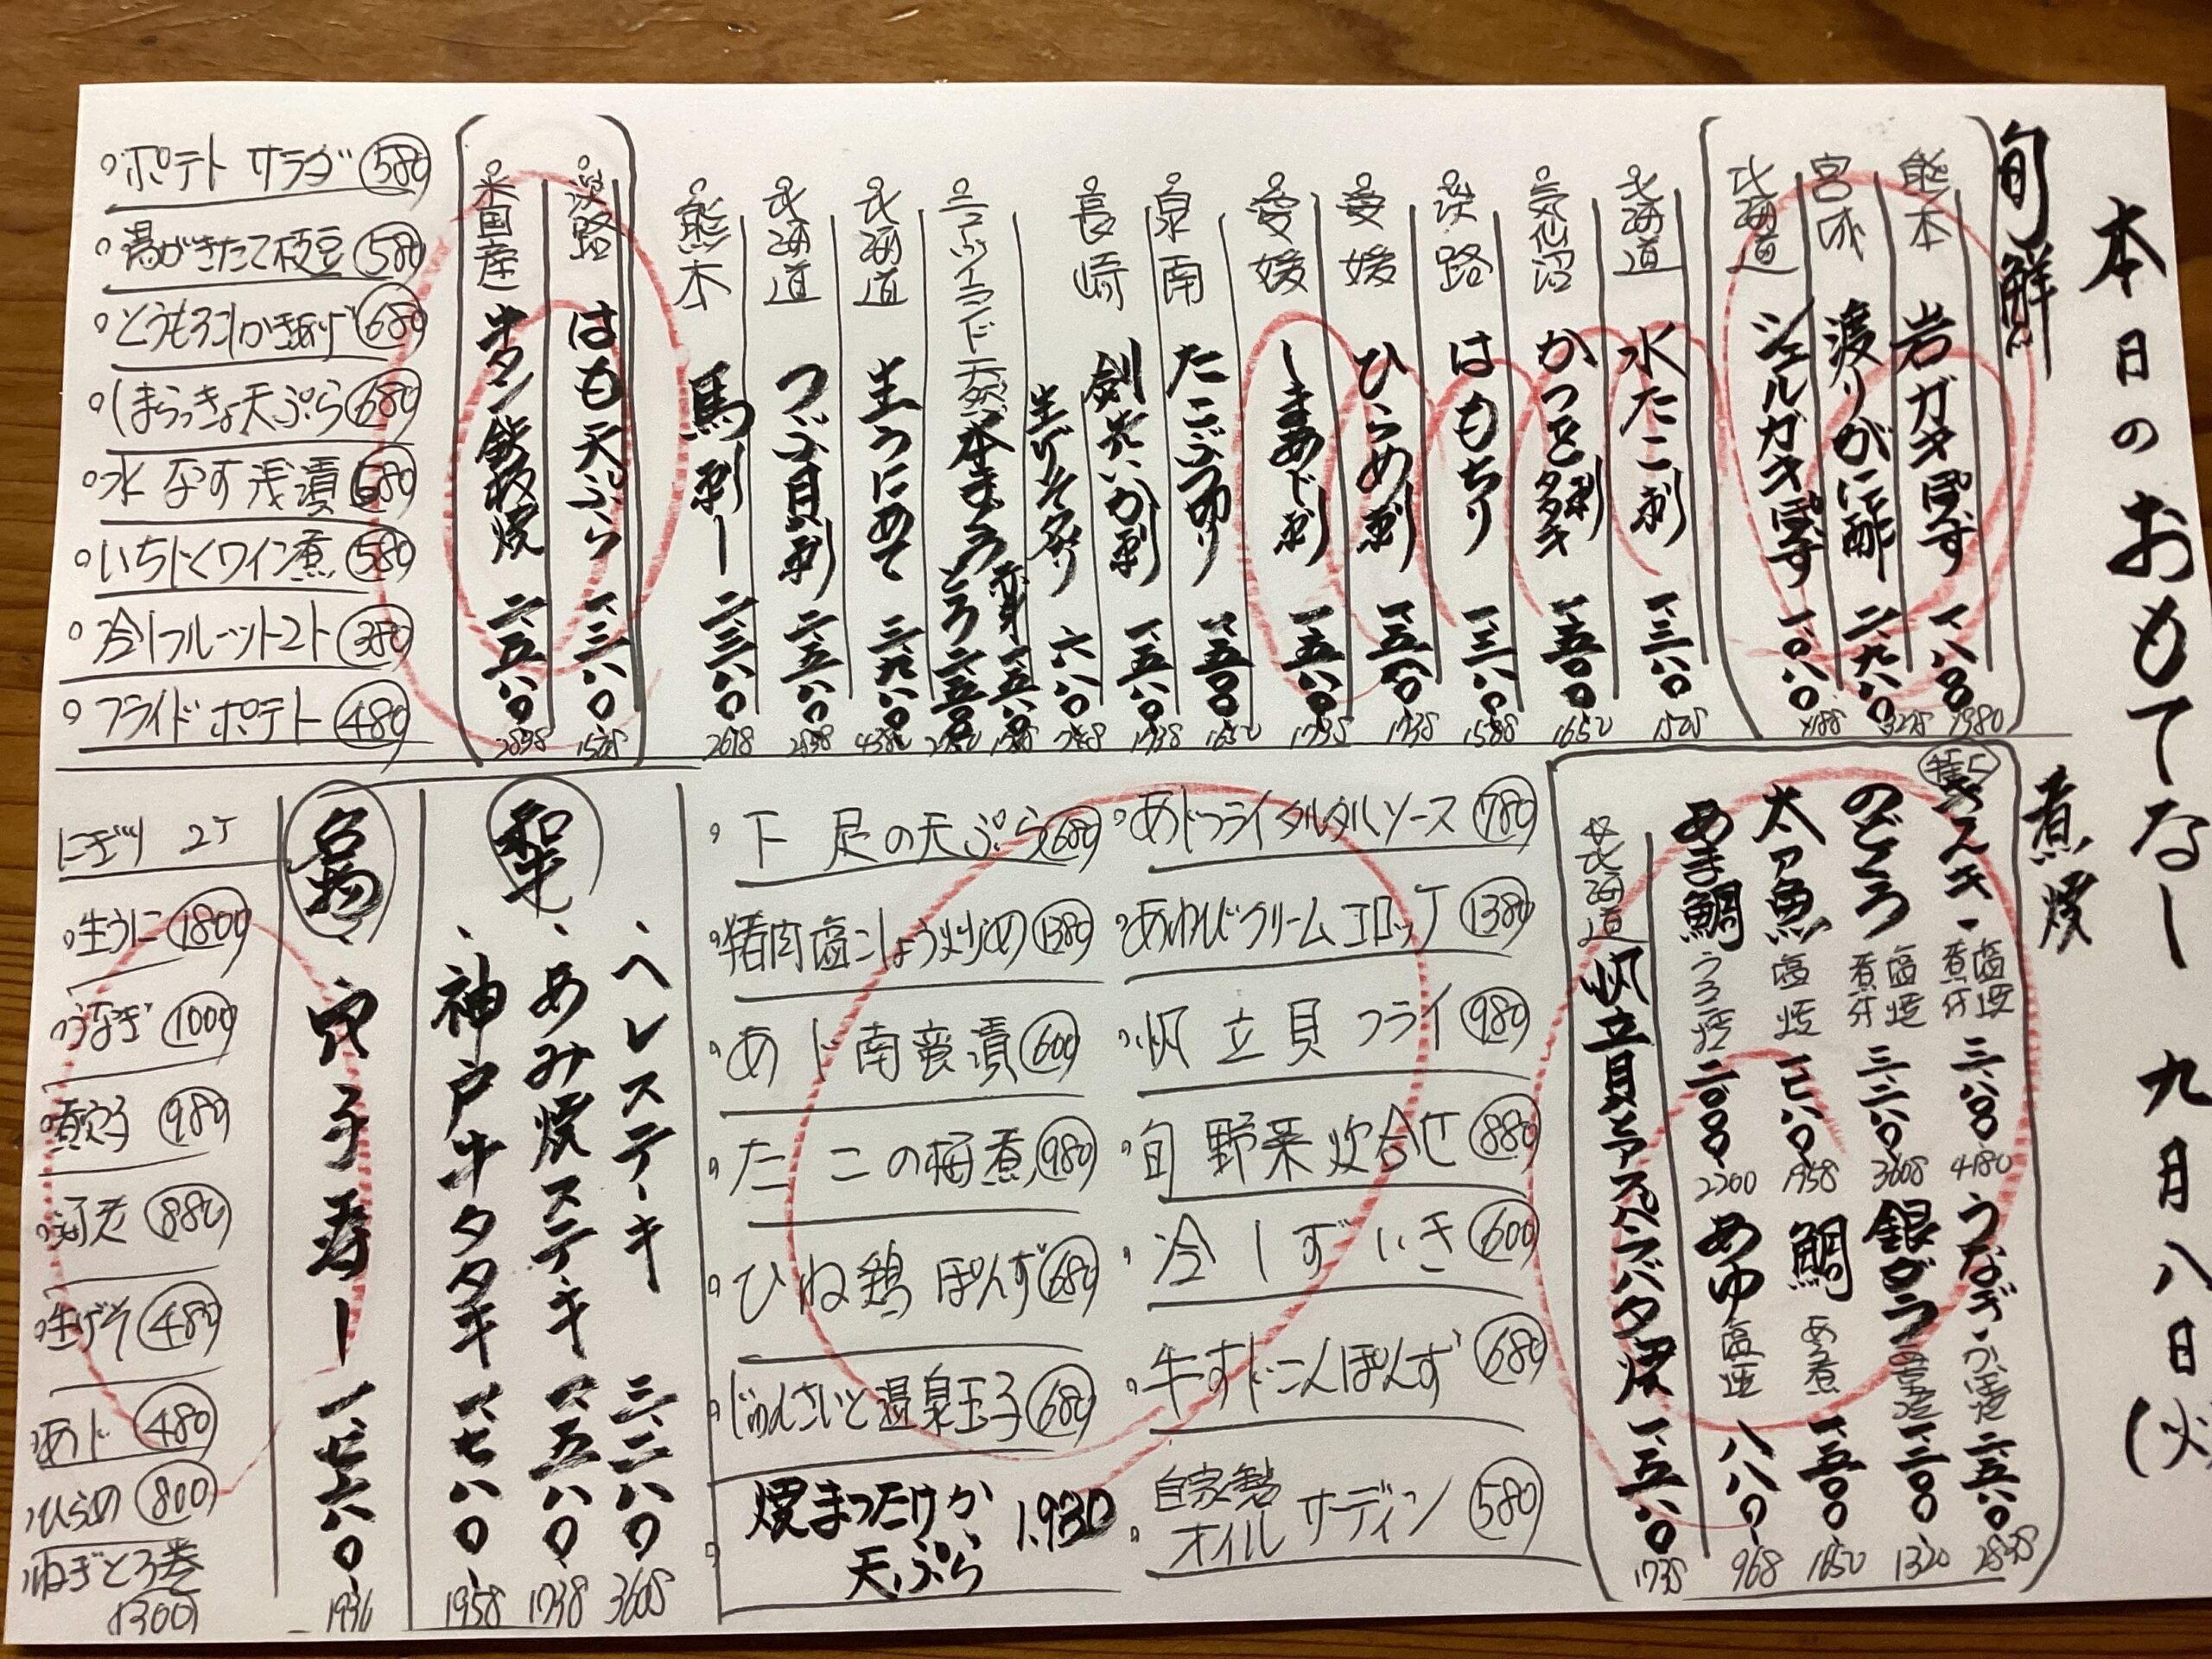 本日のおもてなし 九月八日(火
旬鮮
熊本 岩ガキぽん酢 一、八〇〇 1980
宮城 渡りがに酢 二、九八〇 3278
北海道 シェルガキぽん酢 一、〇八〇 1188
北海道 水たこ刺 一、三八〇 1518
気仙沼 かつを刺 タタキ 一、五〇〇 1650
淡路 はもちり 一、三八〇 1518
愛媛 ひらめ刺 一、五八〇 1738
愛媛 しまあじ刺 一、五八〇 1738
泉南 たこぶつ切り 一、五〇〇 1650
長崎 剣先いか刺 一、五八〇 1738
生げそ造り 六八〇 748
ニュージーランド天然本まぐろ 赤身 一、五八〇 1738
とろ 二、五〇〇 2750
北海道 生うにめて 三、九八〇 4380
北海道 つぶ貝刺 二、五八〇 2838
熊本 馬刺し 二、三八〇 2618
淡路 はも天ぷら 一、三八〇 1518
米国産 牛タン鉄板焼 二、五八〇 2838
ポテトサラダ 580
湯がきたて枝豆 580
とうもろこしかき揚げ 680
しまらっきょ天ぷら 680
水なす浅漬 680
いちじくワイン煮 580
冷しフルーツトマト 380
フライドポテト 480
煮焼
きんき 塩焼 煮付 三、八〇〇 4180
のどぐろ 塩焼 煮付 三、二八〇 3608
太刀魚 塩焼 一、七八〇 1958
あま鯛 うろこ焼 二、〇〇〇 2200
うなぎ かば焼 二、五八〇 2838
銀だら 西京焼 一、二〇〇 1320
鯛 あら煮 一、五〇〇 1650
あゆ 塩焼 八八〇 968
北海道 帆立貝とアスパラバター焼 一、五八〇 1738
あじフライタルタルソース 780
あわびクリームコロッケ 1380
帆立貝フライ 980
旬野菜炊合せ 880
冷しずいき 600
牛すじこんぽんず 680
自家製オイルサーディン 580
下足の天ぷら 680
猪肉塩こしょう炒め 1380
あじ南蛮漬 600
たこの梅煮 980
ひね鶏ぽんず 680
じゅんさいと温泉玉子 680
焼まつたけか天ぷら 1.980
和牛
、ヘレステーキ 三、二八〇 3608
、あみ焼ステーキ 一、五八〇 1738
、神戸牛タタキ 一、七八〇 1958
名物
、穴子寿し 一、七六〇 1936
にぎり 2ケ
生うに 1800
うなぎ 1000
煮穴子 980
海老 880
生げそ 480
あじ 480
ひらめ 800
ねぎとろ巻 1300